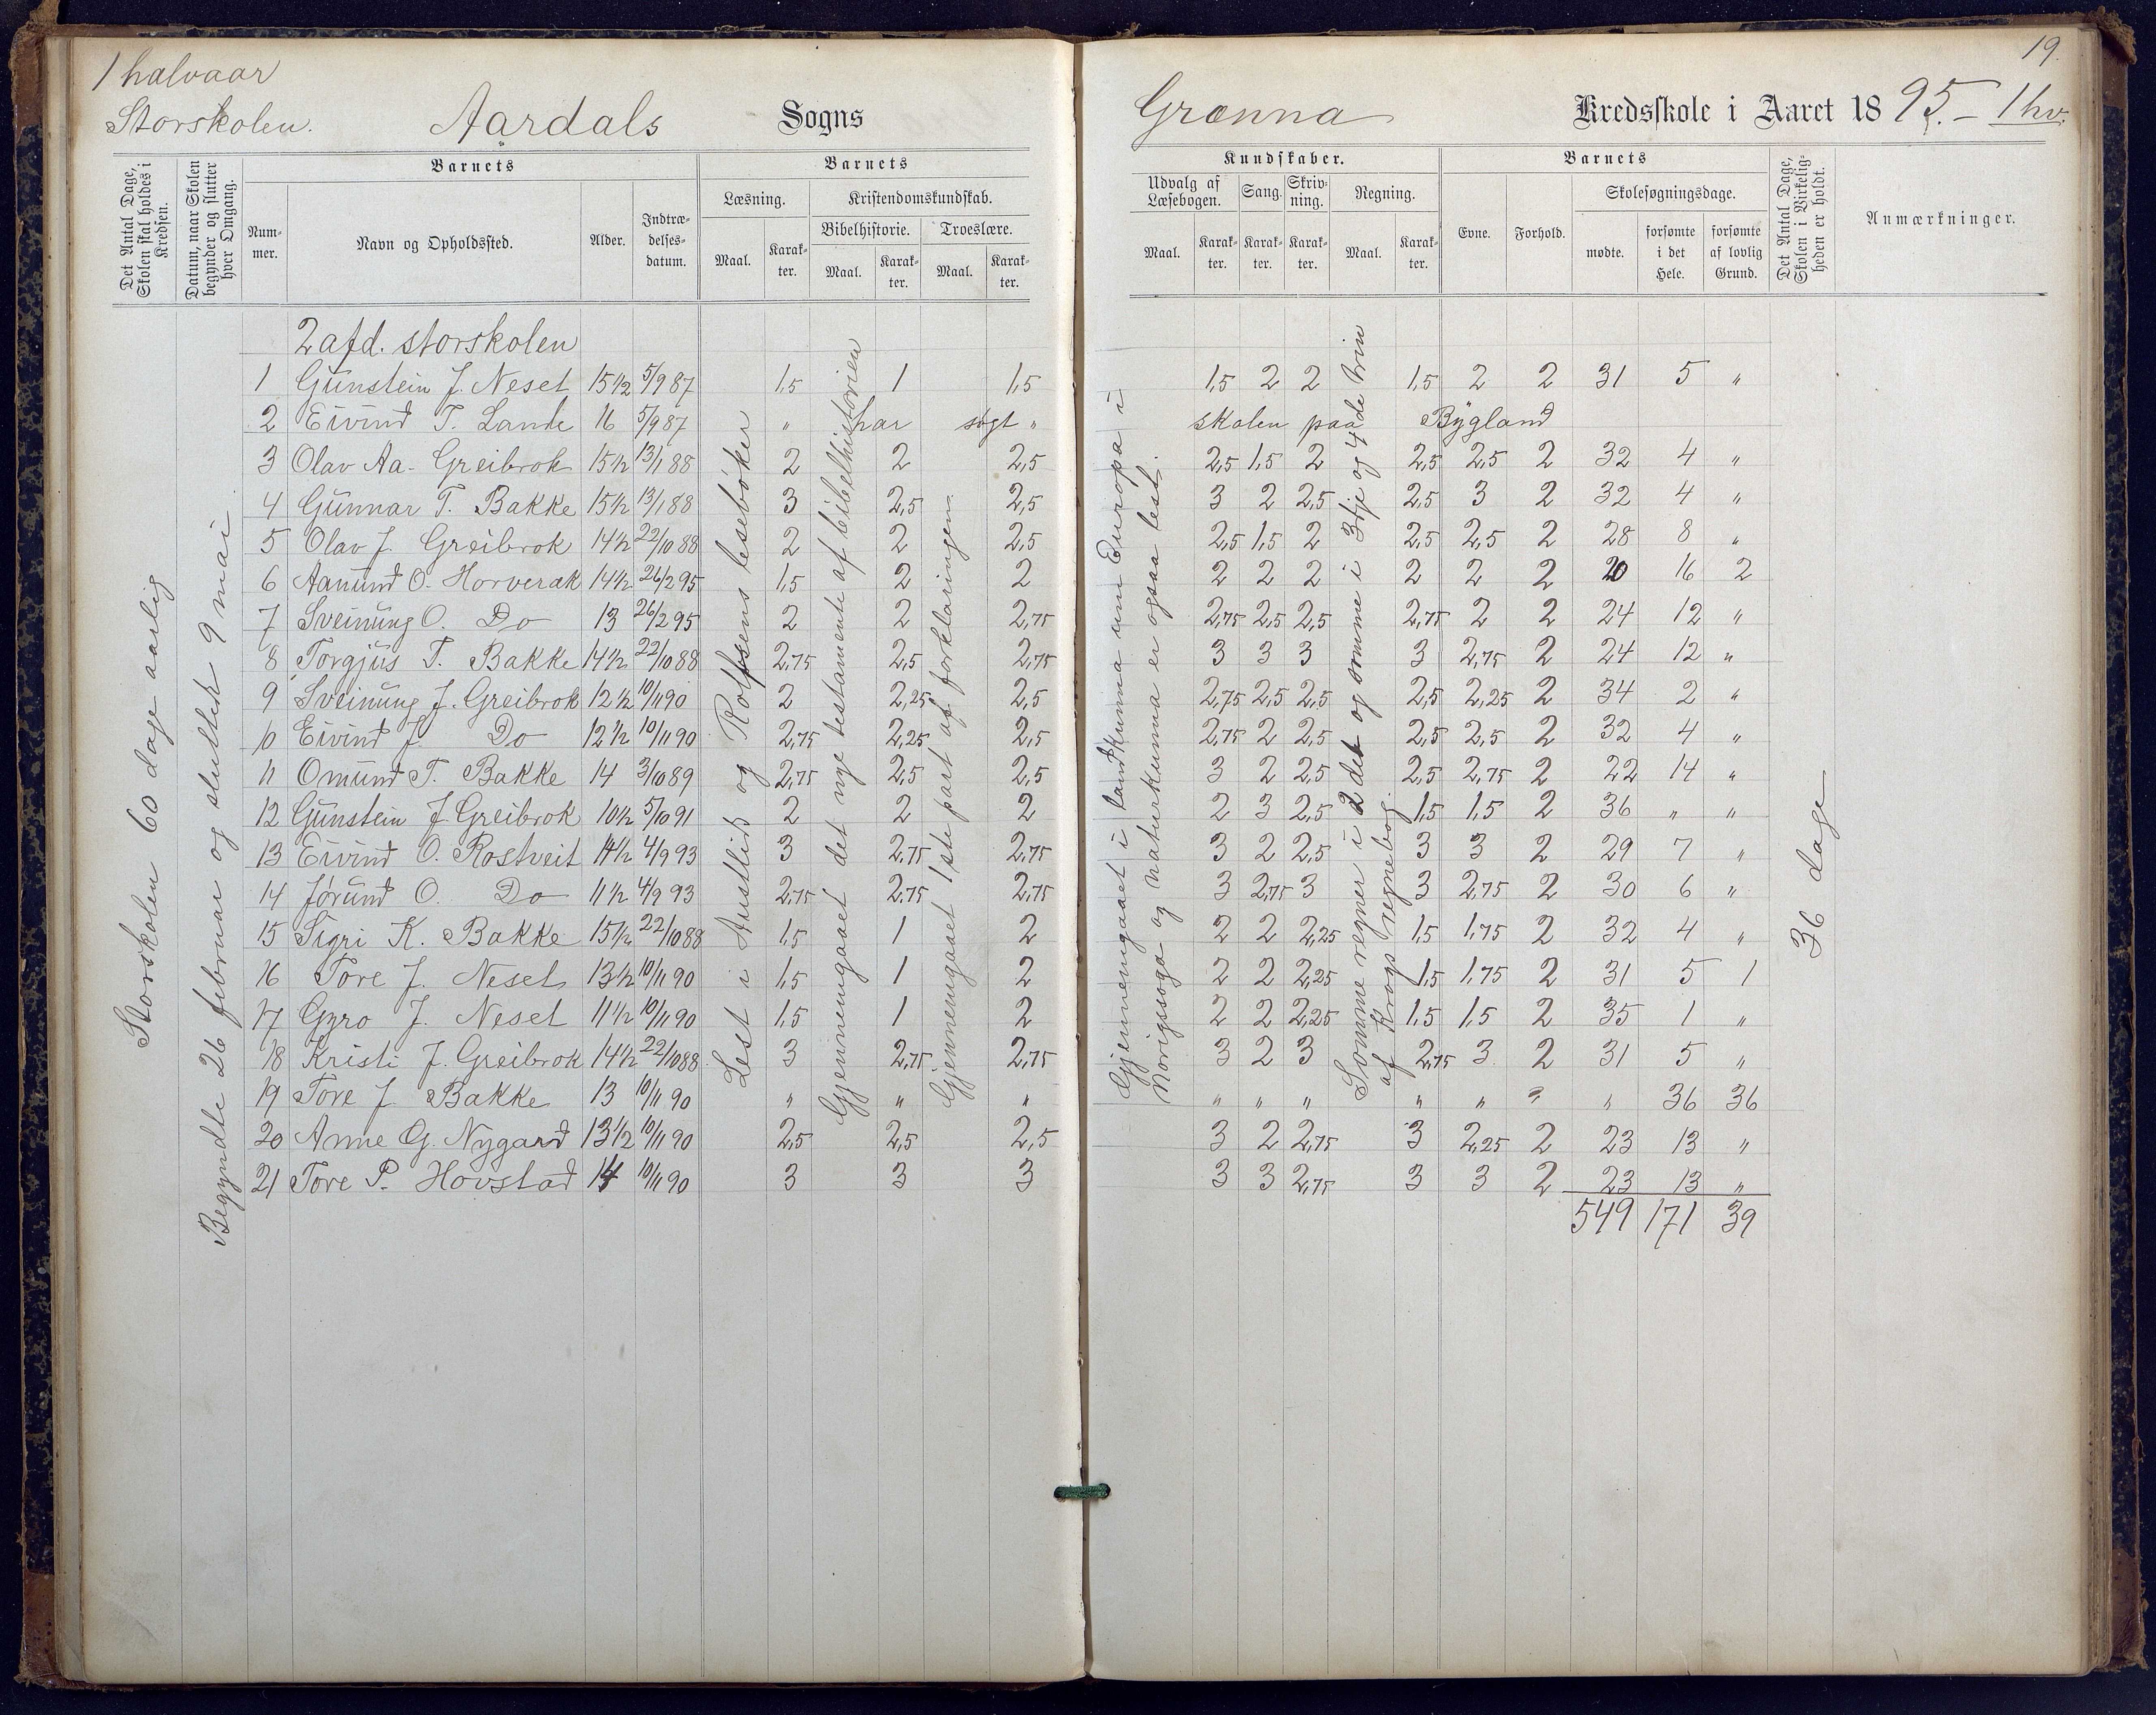 1 halvaar
Storskolen.
Aardals Sogns
19.
Grænna Kredsskole i Aaret 1895. – 1 hv.
Det Antal Dage, Skolen skal holdes i Kredsen.
Datum, naar Skolen begynder og slutter hver Omgang.
Barnets
Nummer.
Navn og Opholdssted.
Alder.
Indtrædelsesdatum.
Barnets
Læsning.
Maal. Karakter.
Kristendomskundskab.
Bibelhistorie. Troeslære.
Maal. Karakter. Maal. Karakter.
Kundskaber.
Udvalg af Læsebogen. Sang. Skrivning. Regning.
Maal. Karakter. Karakter. Karakter. Maal. Karakter.
Barnets
Evne. Forhold.
Skolesøgningsdage.
mødte. forsømte i det Hele. forsømte af lovlig Grund.
Det Antal Dage, Skolen i Virkeligheden er holdt.
Anmærkninger.
Storskolen 60 dage aarlig
Begyndte 26 februar og sluttet 9 mai
Lest i Austlid og Rolfsens lesebøker
Gjennemgaaet det nye testamente af bibelhistorien
Gjennemgaaet 1ste part af forklaringen
Gjennemgaaet i landkunna um Europa i
Norigssoga og naturkunna er ogsaa lest.
Somme regner i 2det og somme i 3tje og 4de trin
af Krogs regnebog.
36 dage
2 afd. storskolen
1 Gunstein J. Neset 15 1/2 5/9 87 1,5 1 1,5 1,5 2 2 1,5 2 2 31 5 "
2 Eivind T. Lande 16 5/9 87 " har søgt " skolen paa Bygland
3 Olav Aa. Greibrok 15 1/2 13/1 88 2 2 2,5 2,5 1,5 2 2,5 2,5 2 32 4 "
4 Gunnar T. Bakke 15 1/2 13/1 88 3 2,5 2,5 3 2 2,5 2,5 3 2 32 4 "
5 Olav J. Greibrok 14 1/2 22/10 88 2 2 2,5 2,5 1,5 2 2,5 2,5 2 28 8 "
6 Aamund O. Horverak 14 1/2 26/2 95 1,5 2 2 2 2 2 2 2 2 20 16 2
7 Sveinung O. Do 13 26/2 95 2 2 2,75 2,75 2,5 2,5 2,75 2 2 24 12 "
8 Torgjus T. Bakke 14 1/2 22/10 88 2,75 2,5 2,75 3 3 3 3 2,75 2 24 12 "
9 Sveinung J. Greibrok 12 1/2 10/11 90 2 2,25 2,5 2,75 2,5 2,5 2,5 2,25 2 34 2 "
10 Eivind J. Do 12 1/2 10/11 90 2,75 2,25 2,5 2,75 2 2,5 2,5 2,5 2 32 4 "
11 Omund T. Bakke 14 3/10 89 2,75 2,5 2,5 3 2 2,5 2,5 2,75 2 22 14 "
12 Gunstein J. Greibrok 10 1/2 5/10 91 2 2 2 2 3 2,5 1,5 1,5 2 36 " "
13 Eivind O. Rostveit 14 1/2 4/9 93 3 2,75 2,75 3 2 2,5 3 3 2 29 7 "
14 Jørund O. Do 11 1/2 4/9 93 2,75 2,75 2,75 3 2,75 3 3 2,75 2 30 6 "
15 Sigri K. Bakke 15 1/2 22/10 88 1,5 1 2 2 2 2,25 1,5 1,75 2 32 4 "
16 Tore J. Neset 13 1/2 10/11 90 1,5 1 2 2 2 2,25 1,5 1,75 2 31 5 1
17 Gyro J. Neset 11 1/2 10/11 90 1,5 1 2 2 2 2,25 1,5 1,5 2 35 1 "
18 Kristi J. Greibrok 14 1/2 22/10 88 3 2,75 2,75 3 2 3 2,75 3 2 31 5 "
19 Tore J Bakke 13 10/11 90 " " " " " " " " " " 36 36
20 Anne G. Nygard 13 1/2 10/11 90 2,5 2,5 2,5 3 2 2,75 3 2,25 2 23 13 "
21 Tore P. Hovstad 14 10/11 90 3 3 3 3 3 2,75 3 3 2 23 13 "
549 171 39